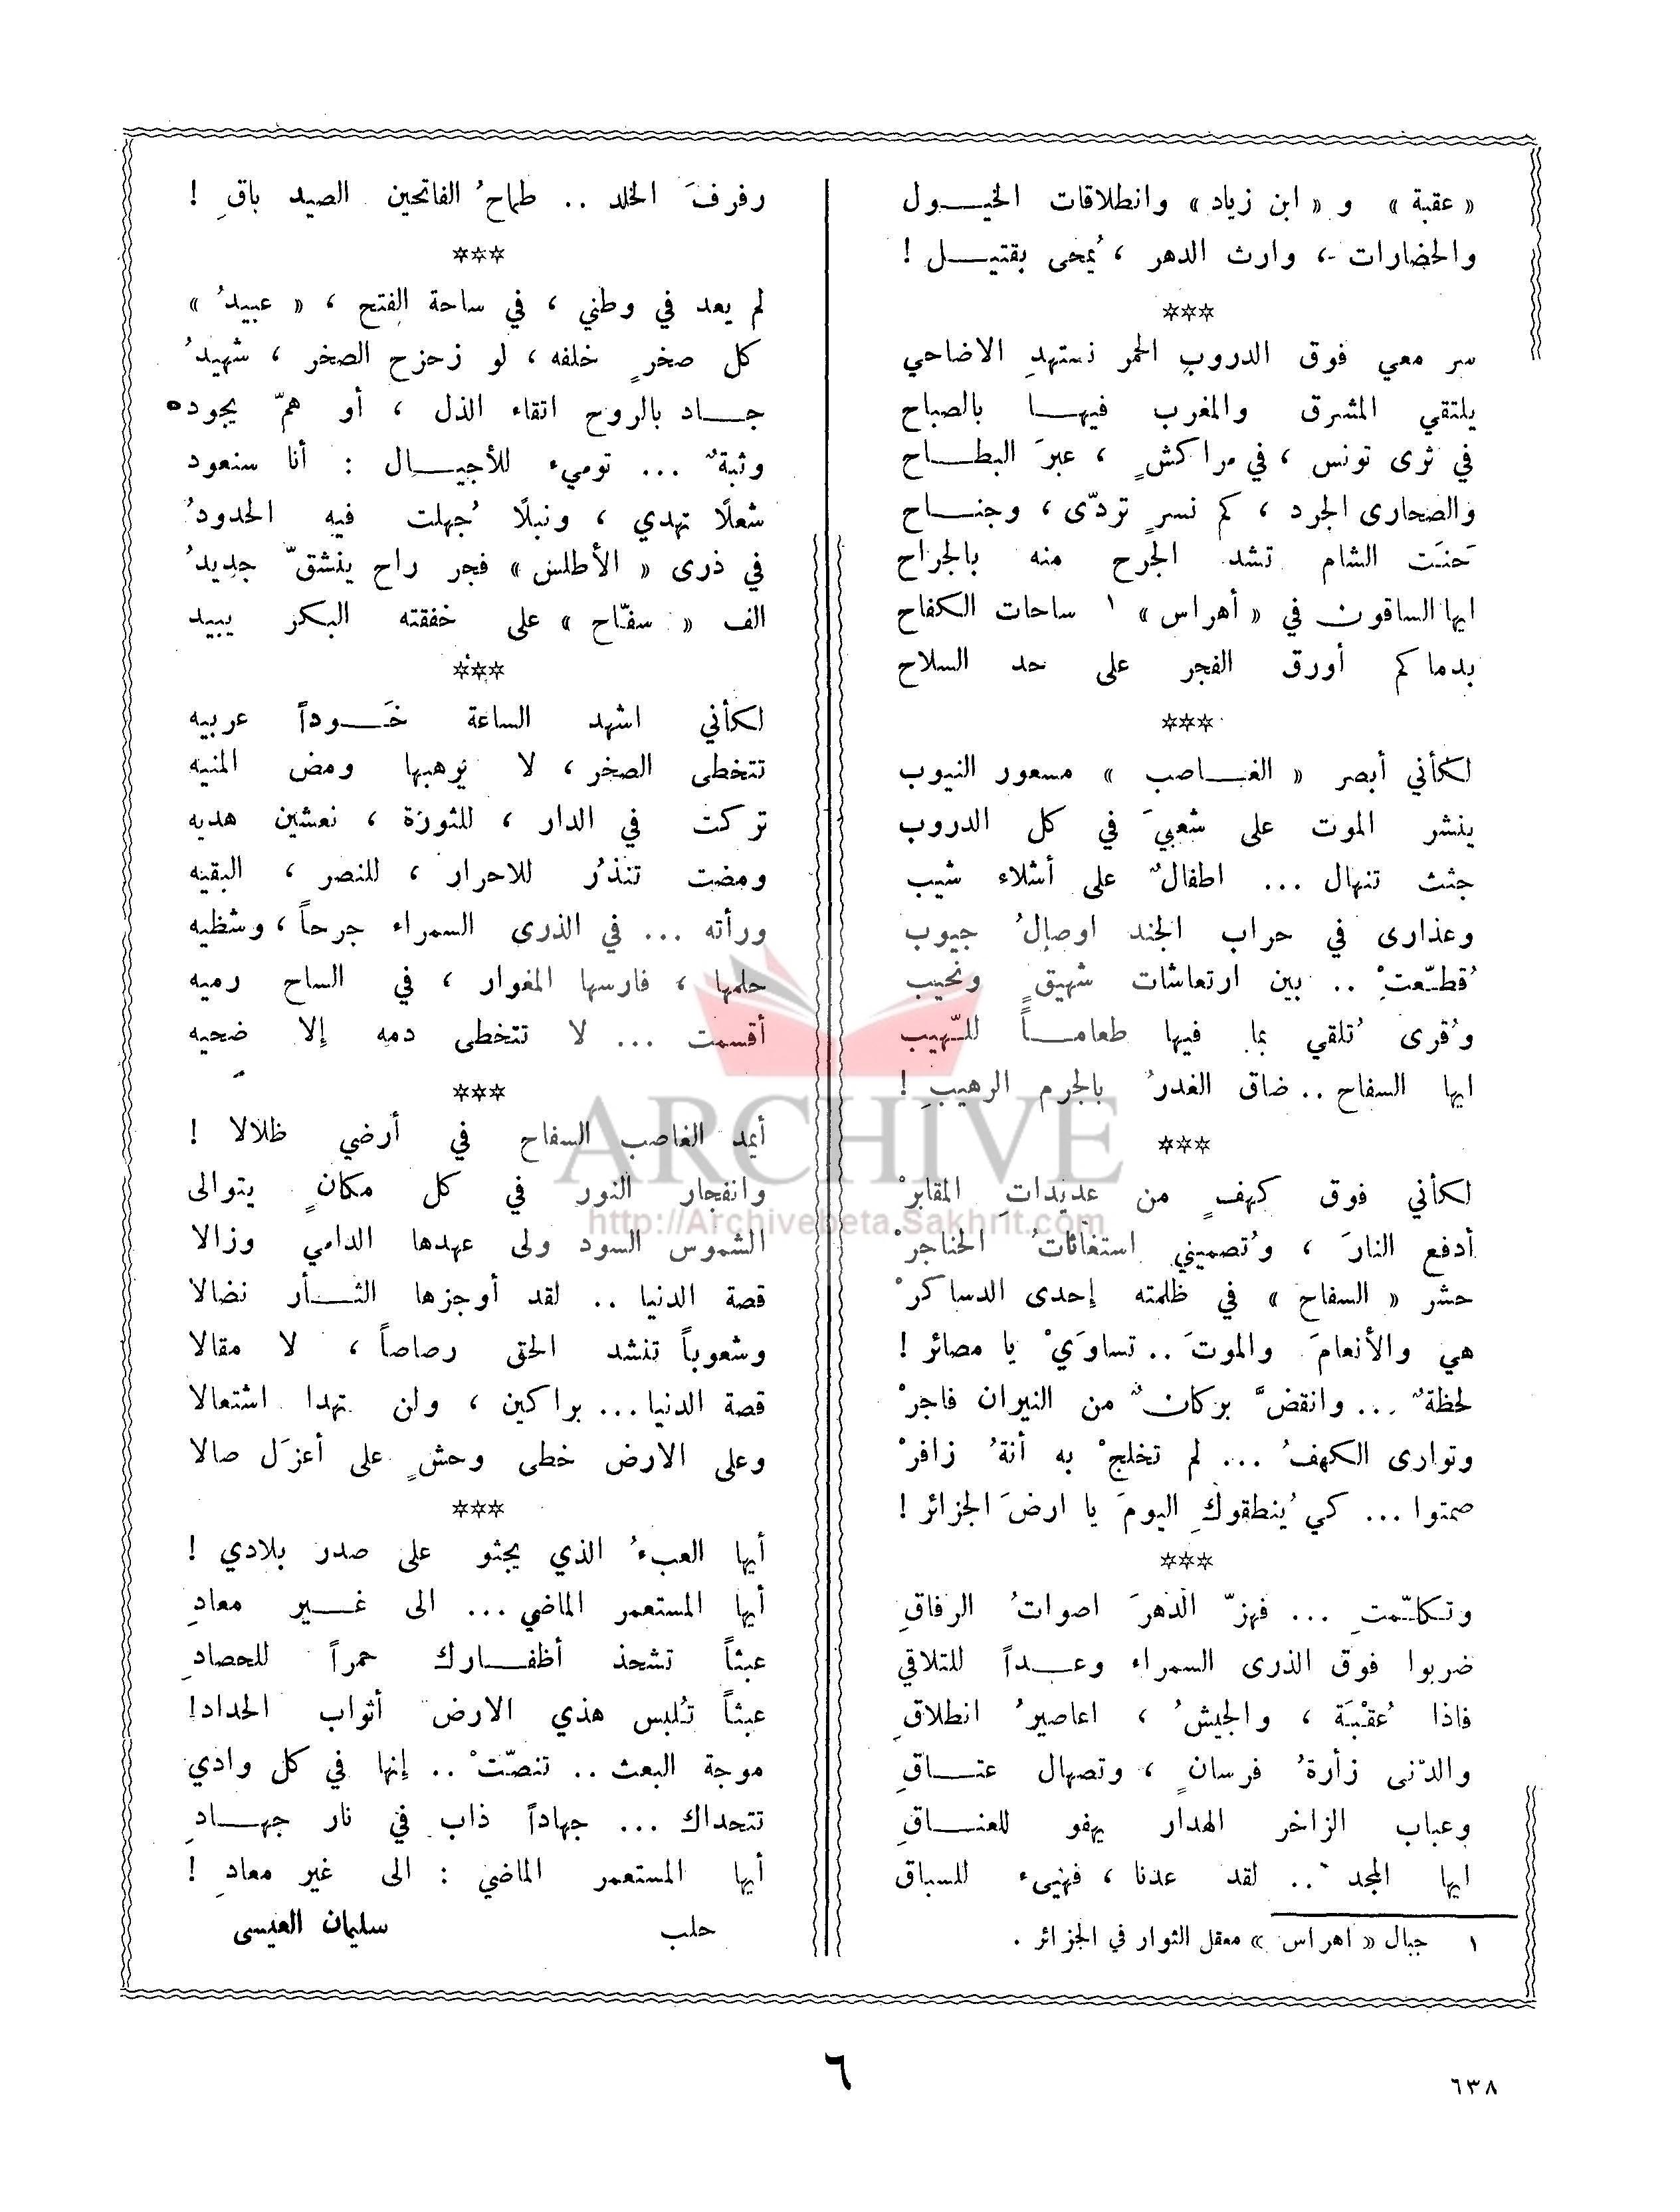 « عقبة » و « ابن زياد » وانطلاقات الخيــول
والحضارات ، وارث الدهر ، يُمحى بقتيــل !
***
سر معي فوق الدروبِ الحمر نستهدِ الاضاحي
يلتقي المشرق والمغرب فيهــا بالصباح
في ثرى تونس ، في مراكشٍ ، عبرَ البطــاح
والصحارى الجرد ، كم نسرٍ تردّى ، وجنــاح
حَنَت الشام تشد الجرح منه بالجراح
ايها الساقون في « أهراس » ١ ساحات الكفاح
بدماكم أورق الفجر على حد السلاح
***
لكأني أبصر « الغــاصب » مسعور النيوب
ينشر الموت على شعبيَ في كل الدروب
جثث تنهال ... اطفالٌ على أشلاء شيب
وعذارى في حراب الجند اوصالُ جيوب
قُطّعتْ .. بين ارتعاشات شهيقٍ ونحيب
وقُرى تُلقي بما فيها طعامــاً للّهيب
ايها السفاح .. ضاق الغدرُ بالجرم الرهيبِ !
***
لكأني فوق كهفٍ من عديداتِ المقابرْ
أدفع النارَ ، وتُصميني استغاثاتُ الخناجرْ
حشر « السفاح » في ظلمته إحدى الدساكرْ
هي والأنعامَ والموتَ .. تساوَيْ يا مصائر !
لحظةٌ ... وانقضَّ بركانٌ من النيران فاجرْ
وتوارى الكهفُ ... لم تخلجْ به أنةُ زافرْ
صمتوا ... كي يُنطقوكِ اليومَ يا ارضَ الجزائر !
***
وتكلّمتِ ... فهزّ الدهرَ اصواتُ الرفاقِ
ضربوا فوق الذرى السمراء وعــداً للتلاقي
فاذا عُقْبَة ، والجيشُ ، اعاصيرُ انطلاقِ
والدّنى زأرةُ فرسانٍ ، وتصهال عتــاقِ
وعباب الزاخر الهدار يهفو للعنــاقِ
ايها المجد .. لقد عدنا ، فهيىء للسباق
١ جبال « اهراس » معقل الثوار في الجزائر .
رفرفَ الخلد .. طماحُ الفاتحين الصيد باقِ !
***
لم يعد في وطني ، في ساحة الفتح ، « عبيدُ »
كل صخرٍ خلفه ، لو زحزح الصخر ، شهيدُ
جــاد بالروح اتقاء الذل ، أو همّ يجوده
وثبةٌ ... توميء للأجيــال : أنا سنعود
شعلًا تهدي ، ونبلًا جُهلت فيه الحدودُ
في ذرى « الأطلس » فجر راح ينشقّ جديدُ
الف « سفّاح » على خفقته البكر يبيد
***
لكأني اشهد الساعة خَــوداً عربيه
تتخطى الصخر ، لا يرهبها ومض المنيه
تركت في الدار ، للثورة ، نعشين هديه
ومضت تنذرُ للاحرار ، للنصر ، البقيه
ورأته ... في الذرى السمراء جرحاً ، وشظيه
حلمها ، فارسها المغوار ، في الساح رميه
أقسمت ... لا تتخطى دمه إلا ضحيه
***
أيمد الغاصب السفاح في أرضي ظلالا !
وانفجار النور في كل مكانٍ يتوالى
الشموس السود ولى عهدها الدامي وزالا
قصة الدنيا .. لقد أوجزها الثــأر نضالا
وشعوباً تنشد الحق رصاصاً ، لا مقالا
قصة الدنيا ... براكين ، ولن تهدا اشتعالا
وعلى الارض خطى وحشٍ على أعزَل صالا
***
أيها العبءُ الذي يجثو على صدر بلادي !
أيها المستعمر الماضي ... الى غــير معادِ
عبثاً تشحذ أظفــارك حمراً للحصادِ
عبثاً تُلبس هذي الارض أثواب الحداد!
موجة البعث .. تنصّتْ .. إنها في كل وادي
تتحداك ... جهاداً ذاب في نار جهــادِ
أيها المستعمر الماضي : الى غير معادِ !
حلب سليمان العيسى
٦
٦٣٨
ARCHIVE
http://Archivebeta.Sakhrit.com